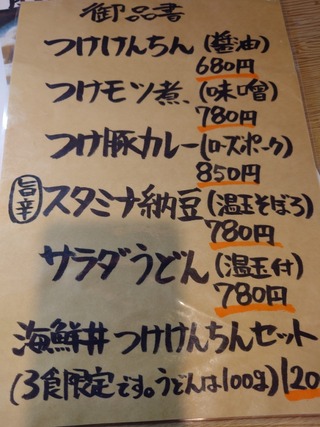 御品書
つけけんちん(醤油)
680円
つけモツ煮、(味噌)
780円
つけ豚カレー(ローズポーク)
850円
旨辛 スタミナ納豆(温玉そぼろ)
780円
サラダうどん(温玉付)
780円
海鮮丼つけけんちんセット
(3食限定です。うどんは100g)120